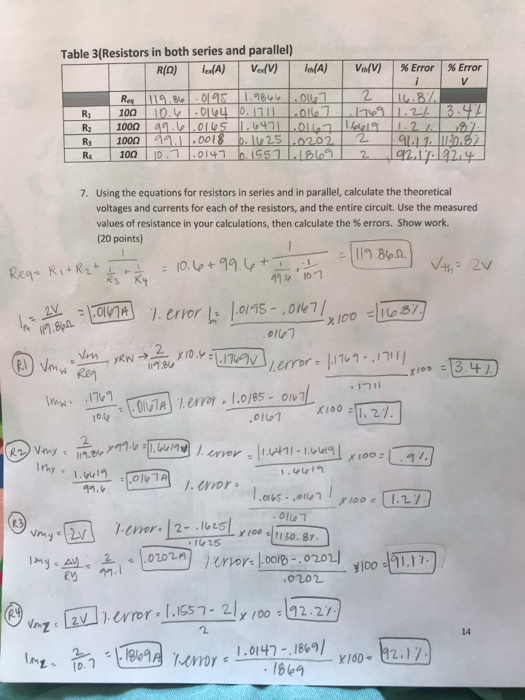 Table 3(Resistors in both series and parallel)
R(Ω) Iex(A) Vex(V) Ith(A) Vth(V) % Error i % Error V
Req 119.86 .0195 1.9866 .0167 2 16.8%
R₁ 10Ω 10.6 .0164 0.1711 .0167 .1769 1.2% 3.4%
R₂ 100Ω 99.6 .0165 1.6471 .0167 1.6619 1.2% .9%
R₃ 100Ω 99.1 .0018 0.1625 .0202 2 91.1% 1130.8%
R₄ 10Ω 10.7 .0147 0.1557 .1869 2 92.1% 92.4
7. Using the equations for resistors in series and in parallel, calculate the theoretical
voltages and currents for each of the resistors, and the entire circuit. Use the measured
values of resistance in your calculations, then calculate the % errors. Show work.
(20 points)
Req = R₁ + R₂ + 1 / (1/R₃ + 1/R₄) = 10.6 + 99.6 + 1 / (1/99.6 + 1/10.7) = 119.86Ω Vth = 2V
In = 2V / 119.86Ω = .0167A % error In = |.0195 - .0167| / .0167 x100 = 16.8%
R1 Vmw = Vin / Req x RW → 2 / 119.86 x 10.6 = .1769V % error = |.1769 - .1711| / .1711 x100 = 3.4%
Imw = .1769 / 10.6 = .0167A % error = |.0185 - .0167| / .0167 x100 = 1.2%
R2 Vmx = 2 / 119.86 x 99.6 = 1.6619V % error = |1.6471 - 1.6619| / 1.6619 x100 = .9%
Imy = 1.6619 / 99.6 = .0167A % error = |.0165 - .0167| / .0167 x100 = 1.2%
R3 Vmy = 2V % error = |2 - .1625| / .1625 x100 = 1130.8%
Imy = ΔV / Ry = 2 / 99.1 = .0202A % error = |.0018 - .0202| / .0202 x100 = 91.1%
R4 Vmz = 2V % error = |.1557 - 2| / 2 x100 = 92.2%
Imz = 2 / 10.7 = .1869A % error = |.0147 - .1869| / .1869 x100 = 92.1%
14